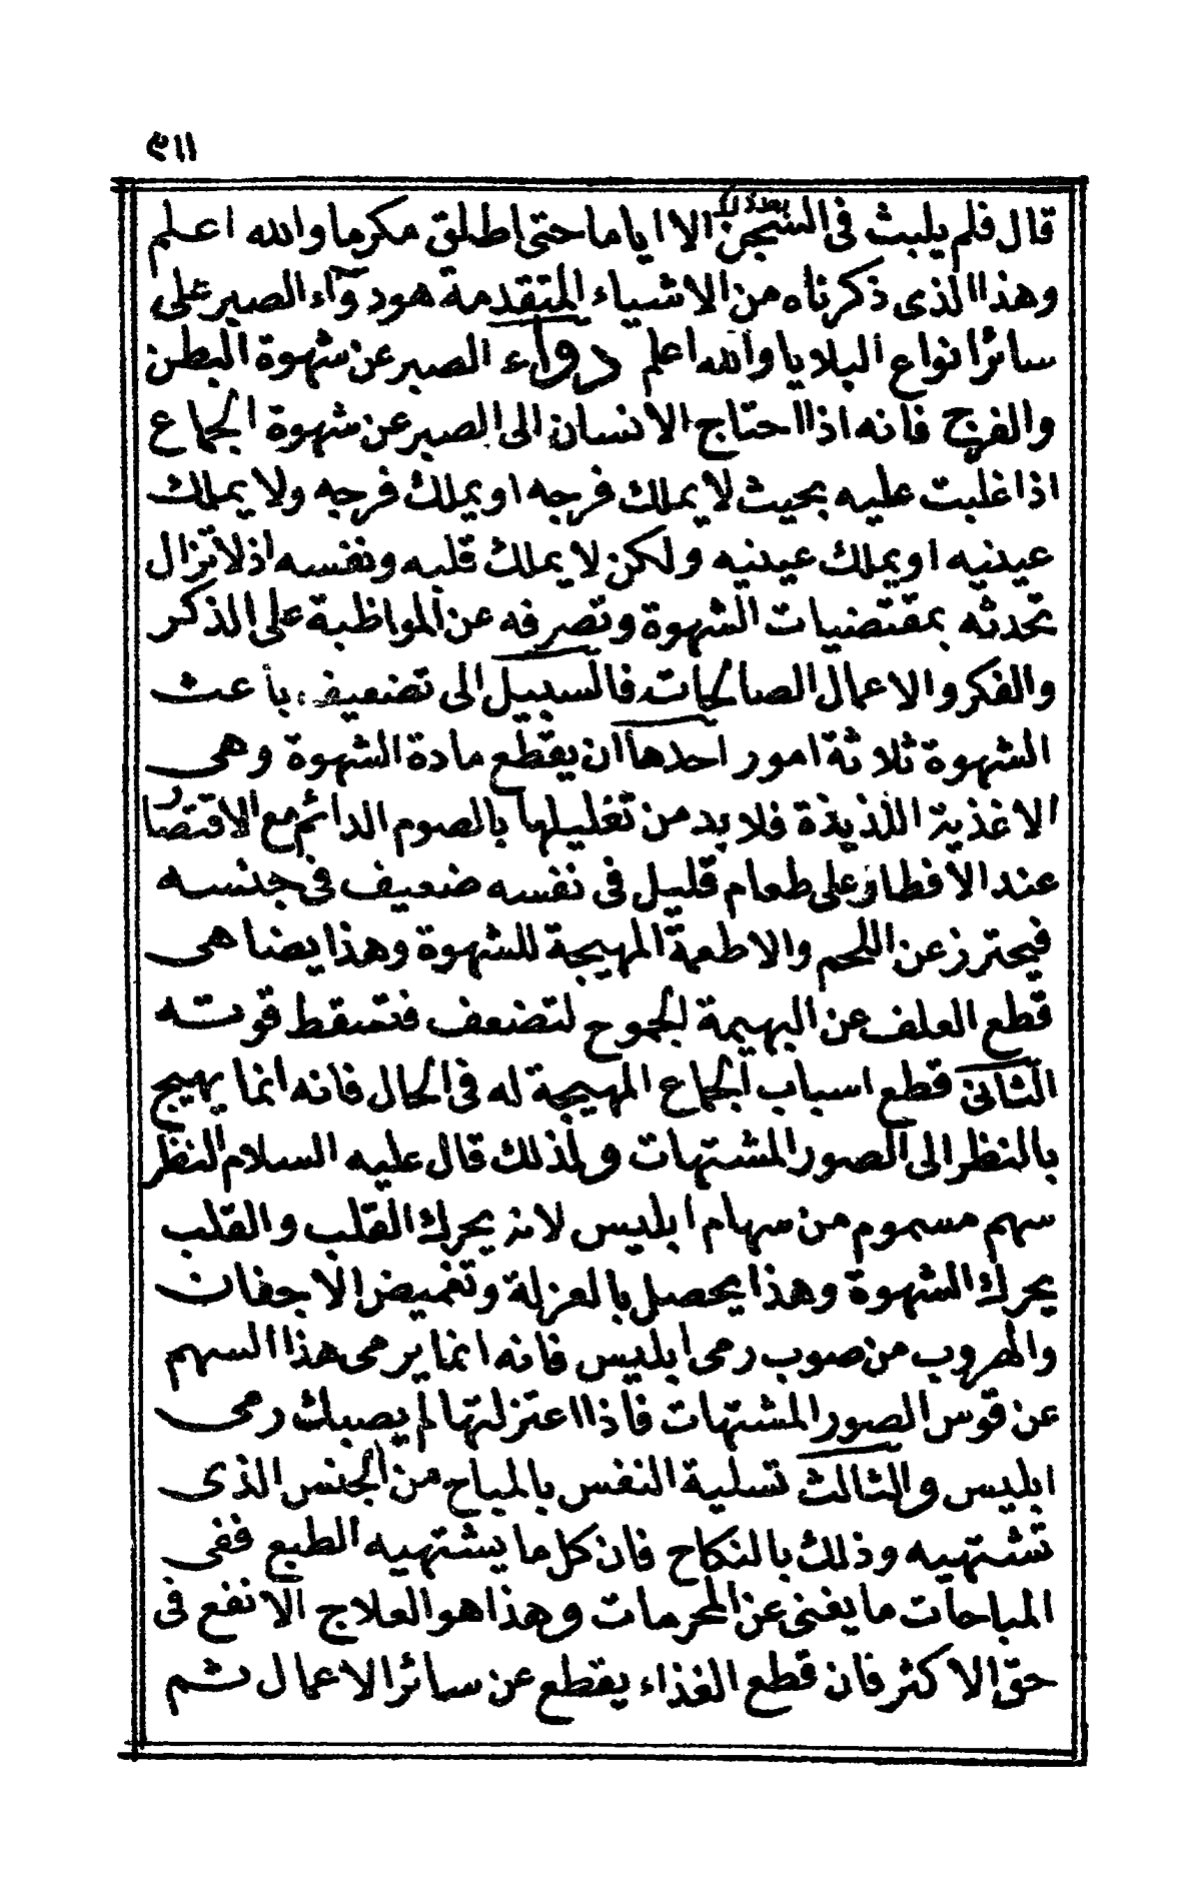 ٥١١
بعد ذلك
قال فلم يلبث فى السجن الا اياما حتى اطلق مكرما والله اعلم
وهذا الذى ذكرناه من الاشياء المتقدمة هو دوآء الصبر على
سائر انواع البلايا والله اعلم دوآء الصبر عن شهوة البطن
والفرج فانه اذا احتاج الانسان الى الصبر عن شهوة الجماع
اذا غلبت عليه بحيث لا يملك فرجه او يملك فرجه ولا يملك
عينيه او يملك عينيه ولكن لا يملك قلبه ونفسه اذ لا تزال
تحدثه بمقتضيات الشهوة وتصرفه عن المواظبة على الذكر
والفكر والاعمال الصالحات فالسبيل الى تضعيف باعث
الشهوة ثلاثة امور احدها ان يقطع مادة الشهوة وهى
الاغذية اللذيذة فلا بد من تقليلها بالصوم الدائم مع الاقتصار
عند الافطار على طعام قليل فى نفسه ضعيف فى جنسه
فيحترز عن اللحم والاطعمة المهيجة للشهوة وهذا يضاهى
قطع العلف عن البهيمة الجموح لتضعف فتسقط قوته
الثانى قطع اسباب الجماع المهيجة له فى الحال فانه انما يهيج
بالنظر الى الصور المشتهات ولذلك قال عليه السلام النظر
سهم مسموم من سهام ابليس لانه يحرك القلب والقلب
يحرك الشهوة وهذا يحصل بالعزلة وتغميض الاجفان
والهروب من صوب رمى ابليس فانه انما يرمى هذا السهم
عن قوس الصور المشتهات فاذا اعتزلتها لم يصبك رمى
ابليس والثالث تسلية النفس بالمباح من الجنس الذى
تشتهيه وذلك بالنكاح فان كل ما يشتهيه الطبع ففى
المباحات ما يغنى عن المحرمات وهذا هو العلاج الانفع فى
حق الاكثر فان قطع الغذاء يقطع عن سائر الاعمال ثم